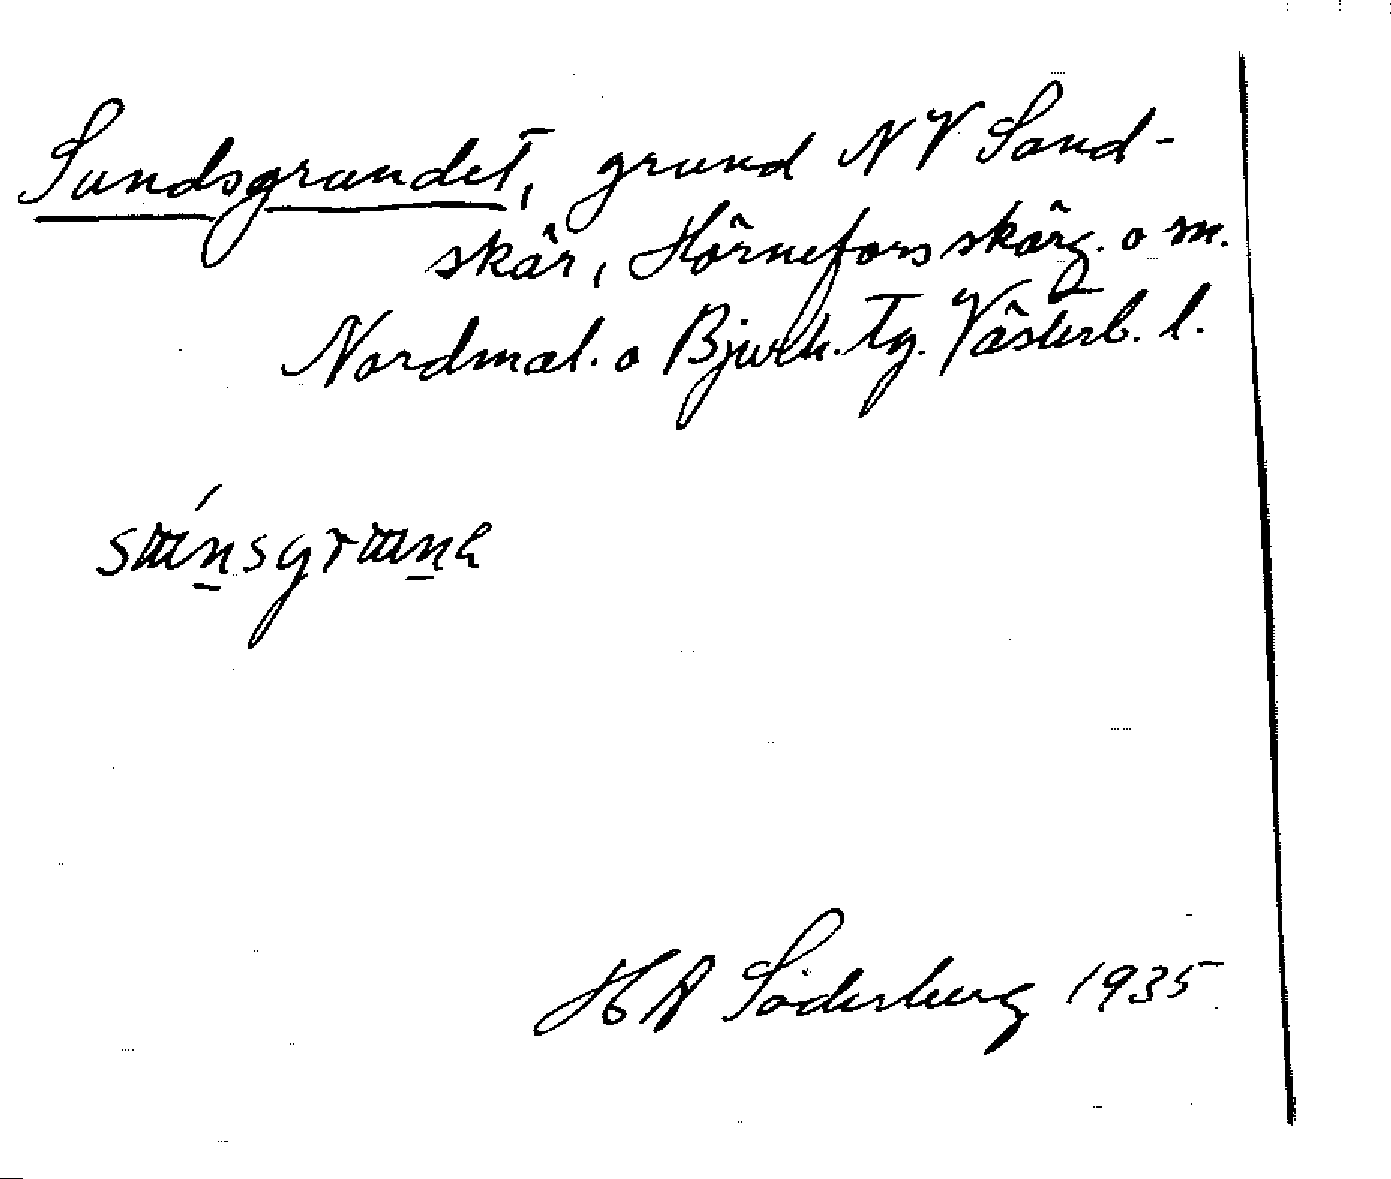 Sundsgrundet, grund NV Sand-
skär, Hörnefors skärg. o m.
Nordmal. o Bjurh. tg. Västerb. l.
H A Söderberg 1935